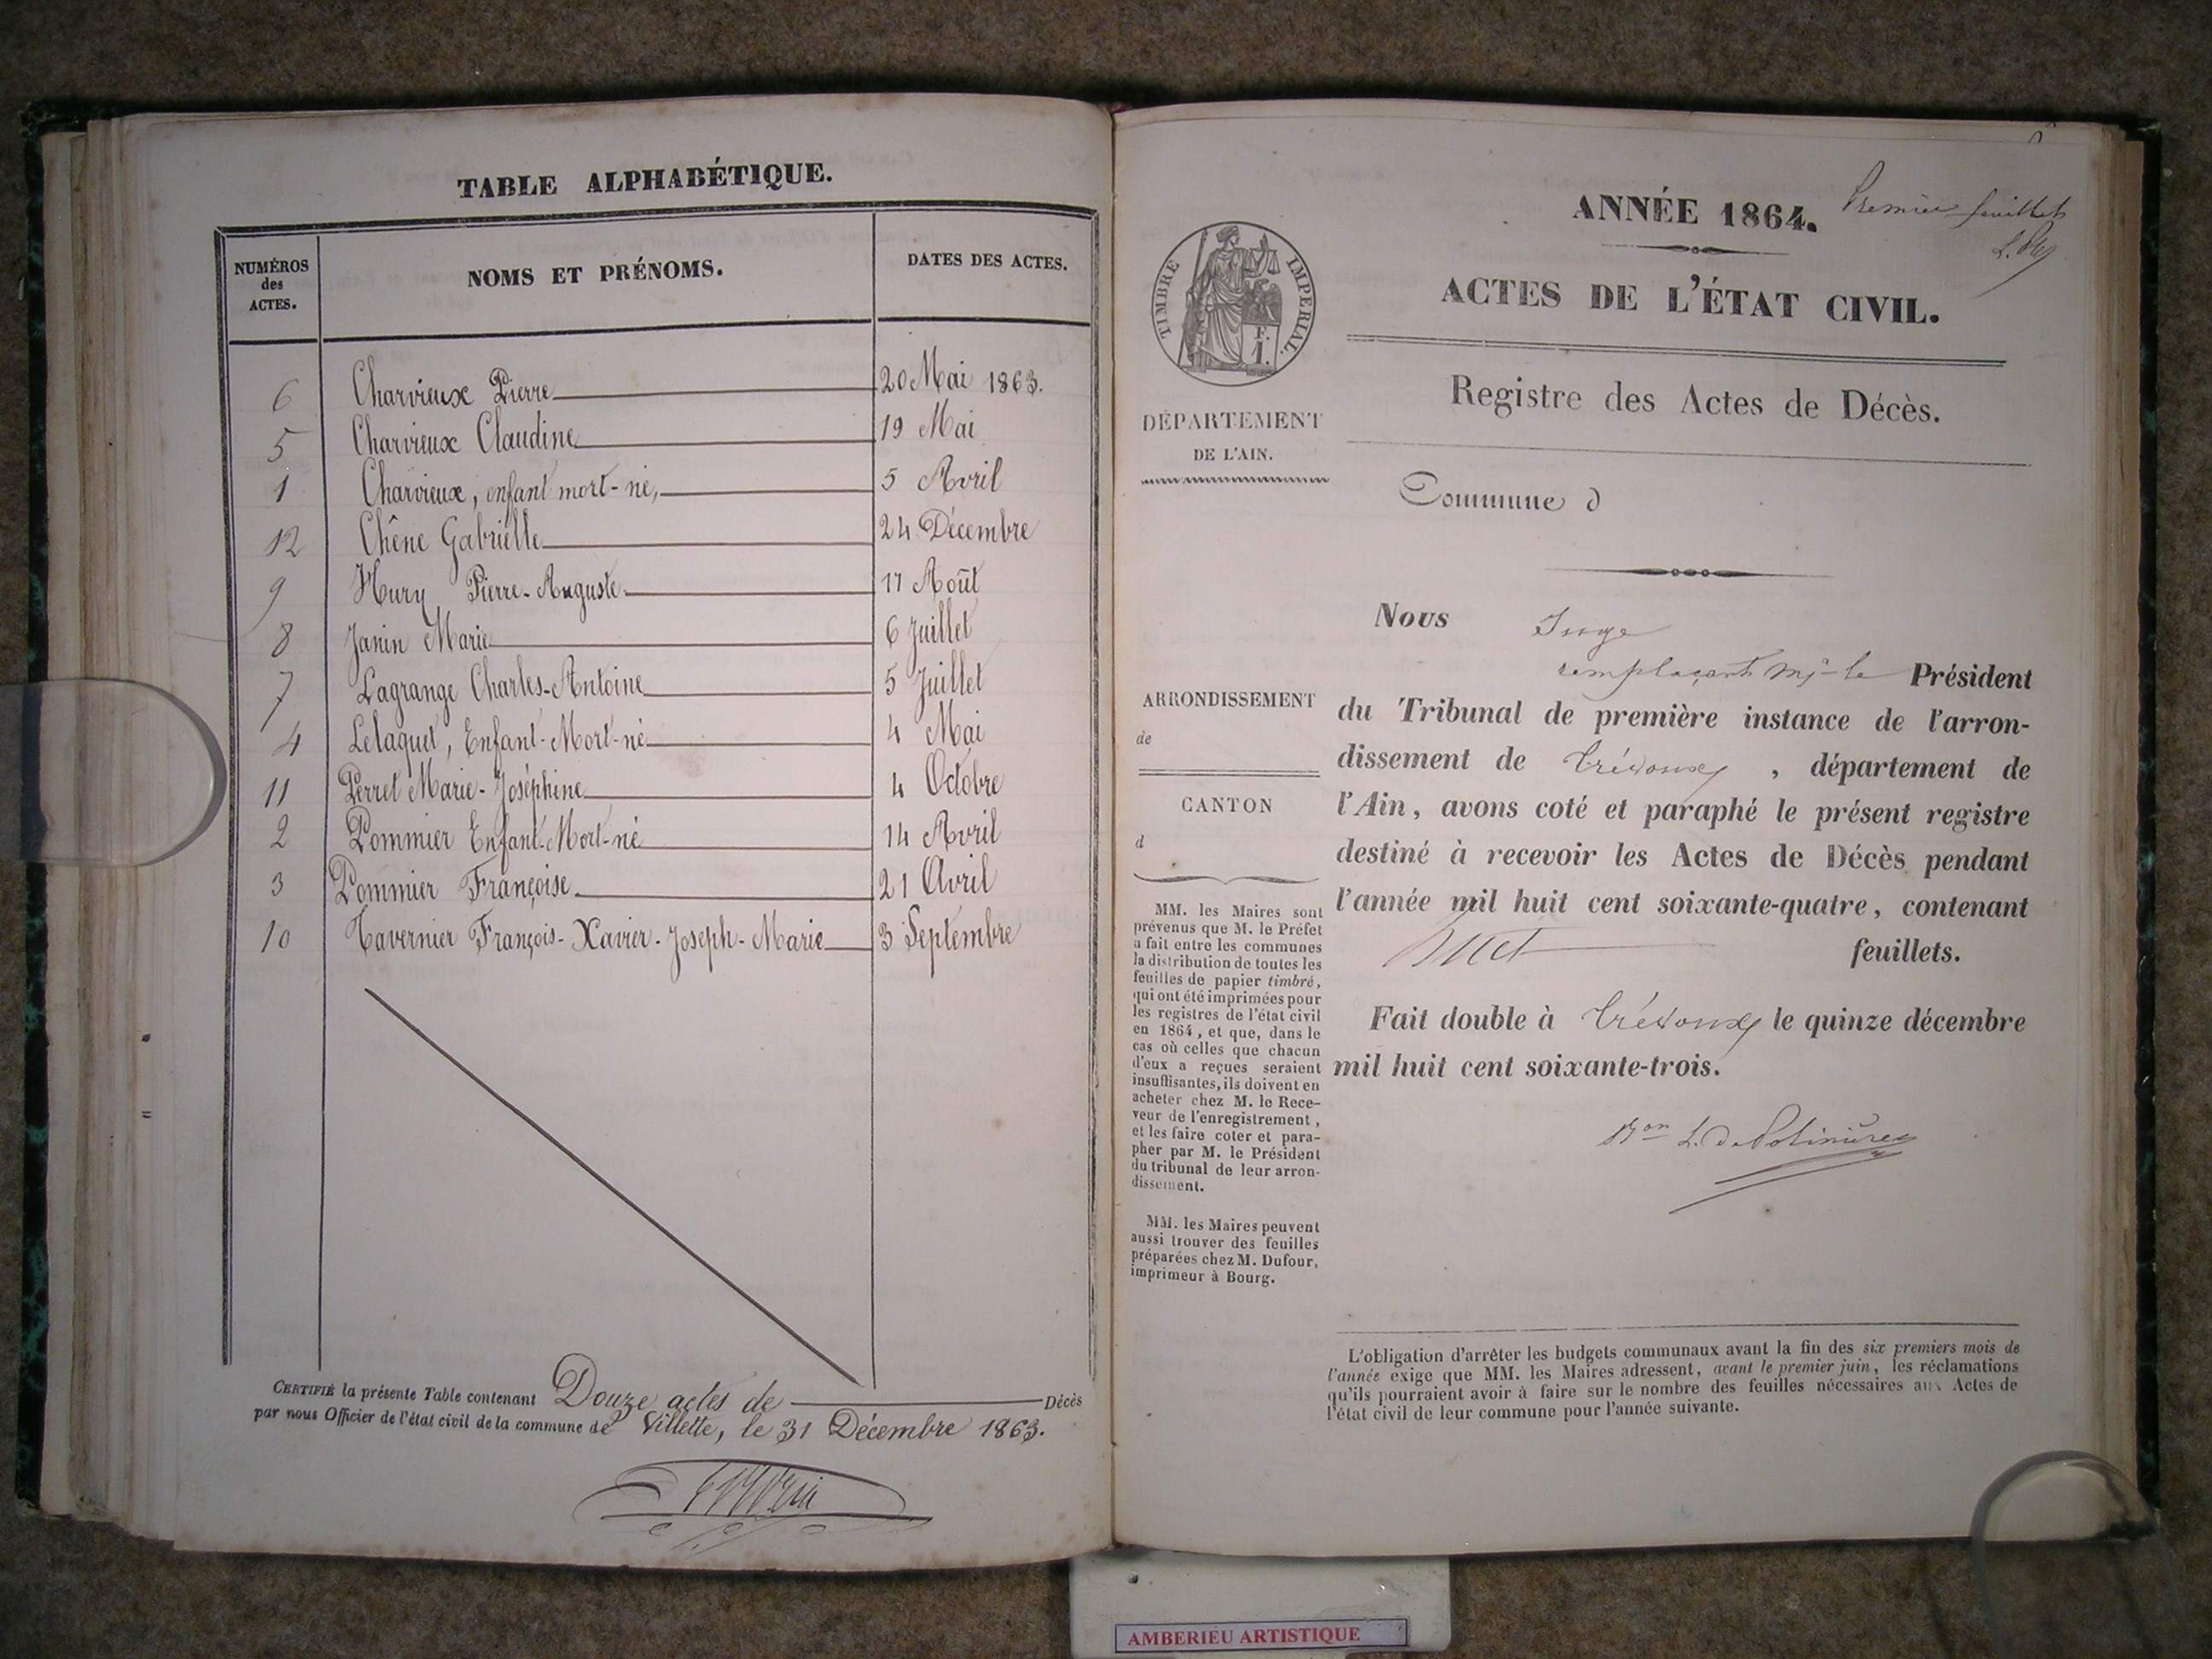 TABLE ALPHABÉTIQUE.
NUMÉROS des ACTES.
NOMS ET PRÉNOMS.
DATES DES ACTES.
6 Charvieux Pierre 20 Mai 1863.
5 Charvieux Claudine 19 Mai
1 Charvieux, enfant mort-né, 5 Avril
12 Chêne Gabrielle 24 Décembre
9 Hury Pierre-Auguste 17 Août
8 Janin Marie 6 Juillet
7 Lagrange Charles-Antoine 5 Juillet
4 Lelaquet, Enfant-Mort-né 4 Mai
11 Perret Marie-Joséphine 4 Octobre
2 Pommier Enfant-Mort-né 14 Avril
3 Pommier Françoise 21 Avril
10 Tavernier François-Xavier-Joseph-Marie 3 Septembre
CERTIFIÉ la présente Table contenant Douze actes de Décès
par nous Officier de l'état civil de la commune de Villette, le 31 Décembre 1863.
Premier feuillet
ANNÉE 1864.
ACTES DE L'ÉTAT CIVIL.
TIMBRE IMPÉRIAL.
F.
1.
Registre des Actes de Décès.
DÉPARTEMENT
DE L'AIN.
Commune d
ARRONDISSEMENT
de
CANTON
d
MM. les Maires sont
prévenus que M. le Préfet
a fait entre les communes
la distribution de toutes les
feuilles de papier timbré,
qui ont été imprimées pour
les registres de l'état civil
en 1864, et que, dans le
cas où celles que chacun
d'eux a reçues seraient
insuffisantes, ils doivent en
acheter chez M. le Rece-
veur de l'enregistrement,
et les faire coter et para-
pher par M. le Président
du tribunal de leur arron-
dissement.
MM. les Maires peuvent
aussi trouver des feuilles
préparées chez M. Dufour,
imprimeur à Bourg.
Nous Juge
remplaçant Mr le Président
du Tribunal de première instance de l'arron-
dissement de Trévoux, département de
l'Ain, avons coté et paraphé le présent registre
destiné à recevoir les Actes de Décès pendant
l'année mil huit cent soixante-quatre, contenant
feuillets.
Fait double à Trévoux le quinze décembre
mil huit cent soixante-trois.
Bon L. de Polinière
L'obligation d'arrêter les budgets communaux avant la fin des six premiers mois de
l'année exige que MM. les Maires adressent, avant le premier juin, les réclamations
qu'ils pourraient avoir à faire sur le nombre des feuilles nécessaires aux Actes de
l'état civil de leur commune pour l'année suivante.
AMBERIEU ARTISTIQUE